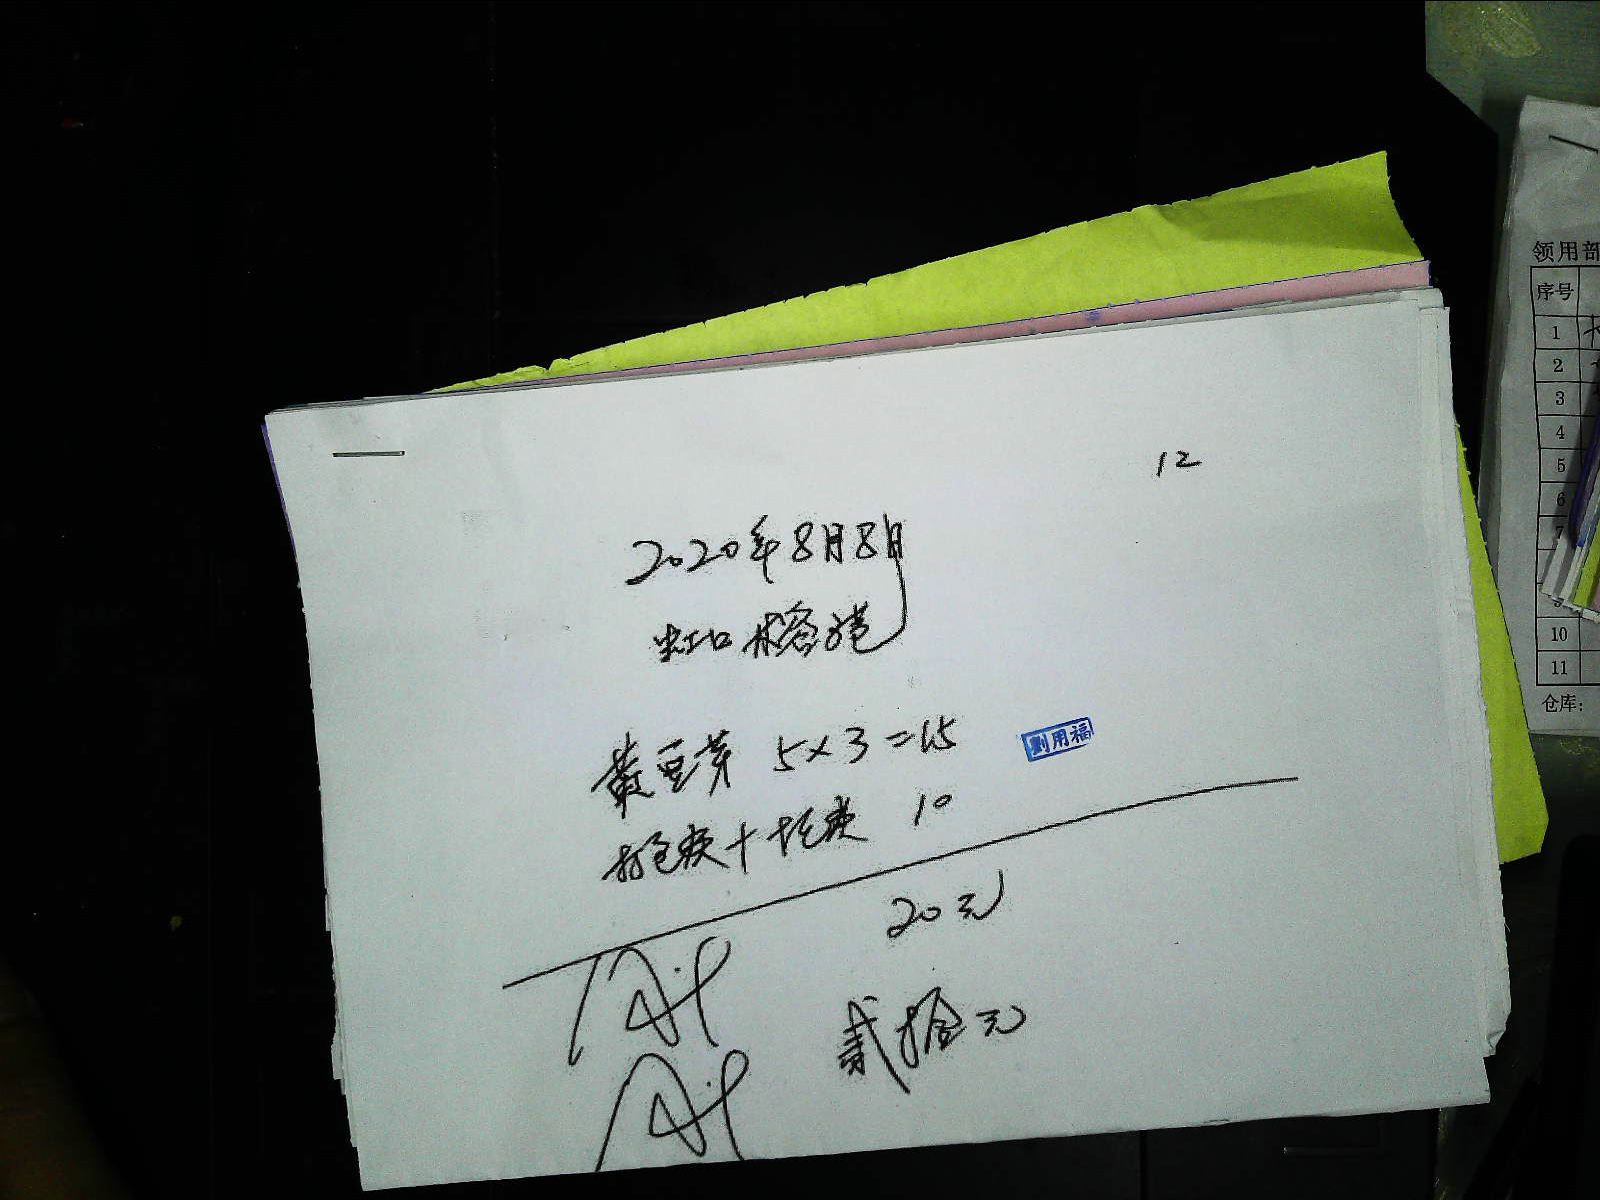 12
2020年8月8日
虹口榕港
黄豆芽 5×3=15
打包费+托费 10
20元
贰拾元
用福
领用部
序号
1
2
3
4
5
6
7
9
10
11
仓库: